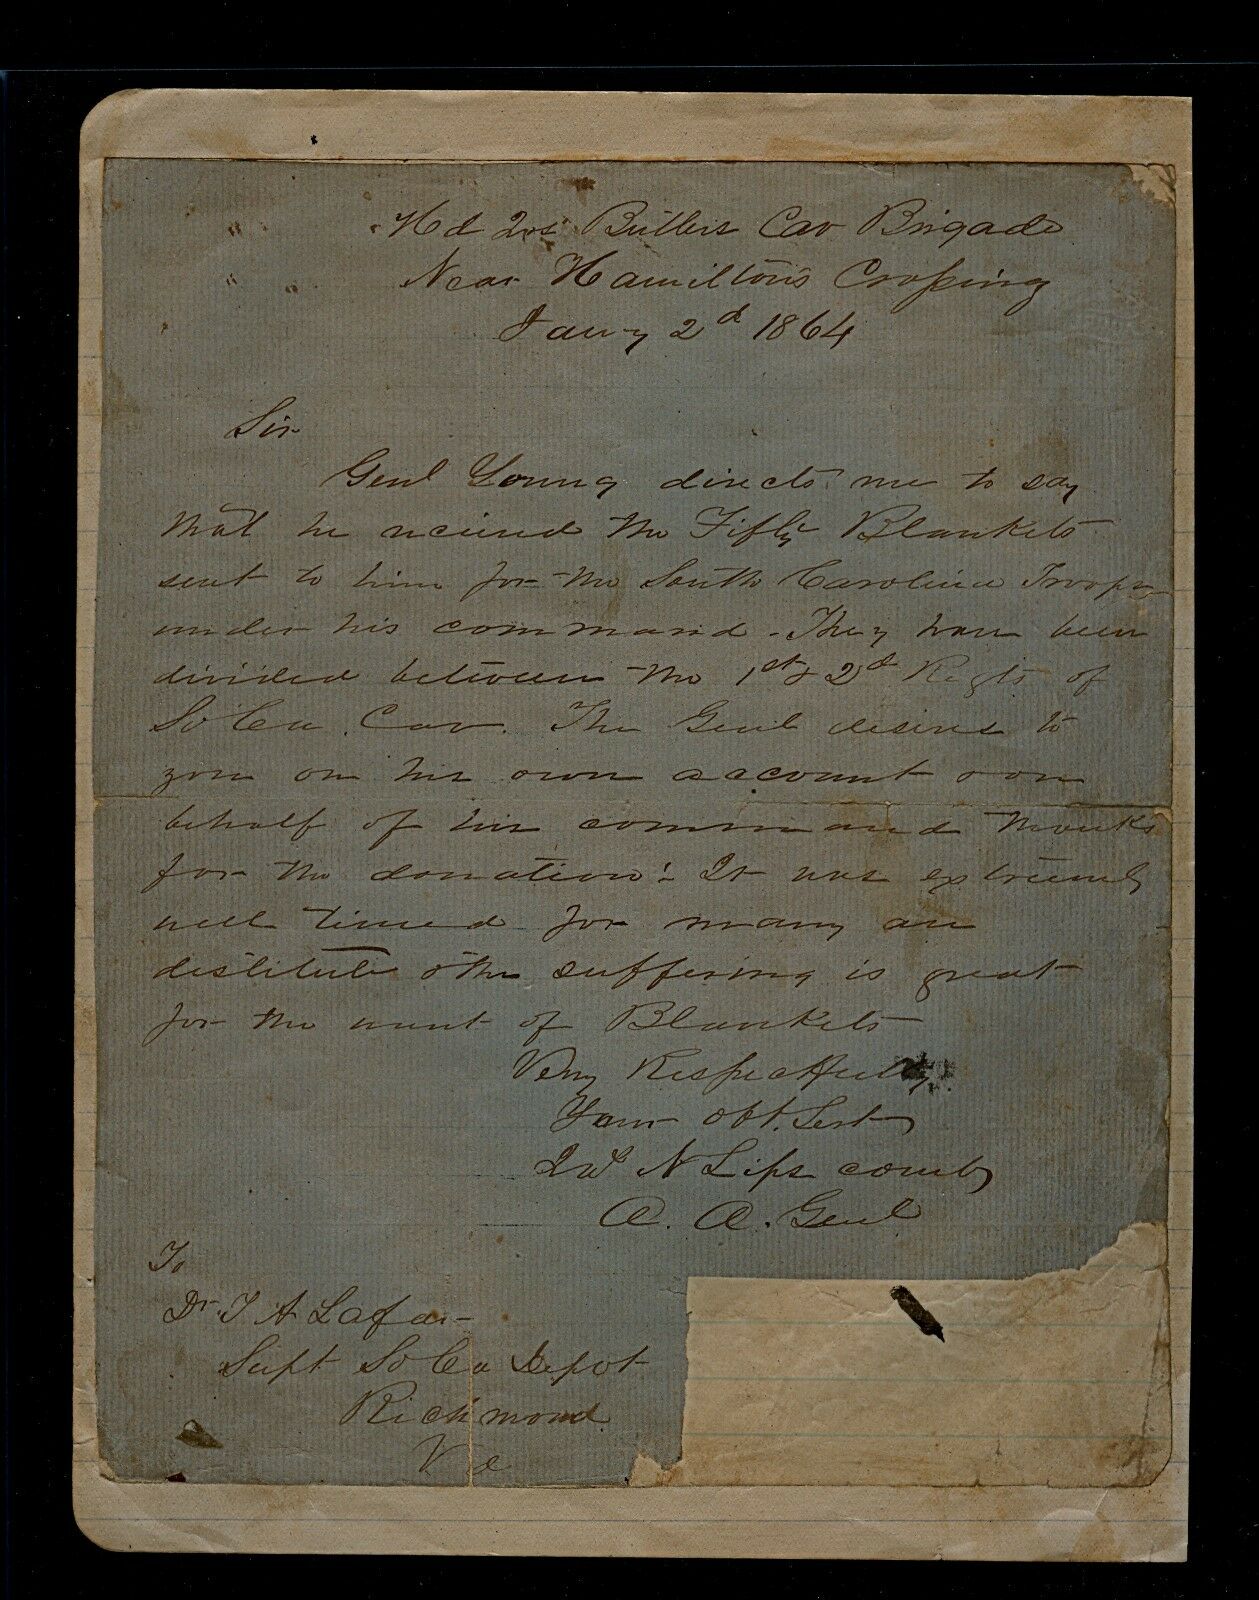 Hd Qrs Butlers Cav Brigade
Near Hamiltons Crossing
Jany 2d 1864
Sir
Genl Young directs me to say
that he recieved the Fifty Blankets
sent to him for the South Carolina Troops
under his command. They have been
divided between the 1st & 2d Regts of
So Ca Cav. The Genl desires to
you on his own account & on
behalf of his command thanks
for the donation. It was extremely
well timed for many are
destitute & the suffering is great
for the want of Blankets
Very Respectfully
Your obt. Servt
N Lipscomb
A. A. Genl
To
Dr. T A Lafar
Supt So Ca Depot
Richmond
Va